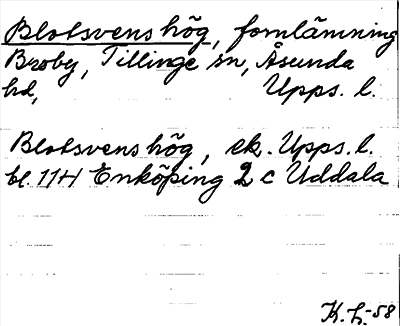 Blotsvens hög, fornlämning
Broby, Tillinge sn, Åsunda
hd, Upps. l.
Blotsvens hög, ek. Upps. l.
bl. 11H Enköping 2 c Uddala
K.L-58